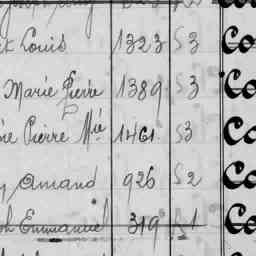 Louis 1323 S3 Co
Marie Pierre 1389 S3 Co
Pierre Mié 1461 S3 Co
Amand 926 S2 Co
Emmanuel 319 S1 Co